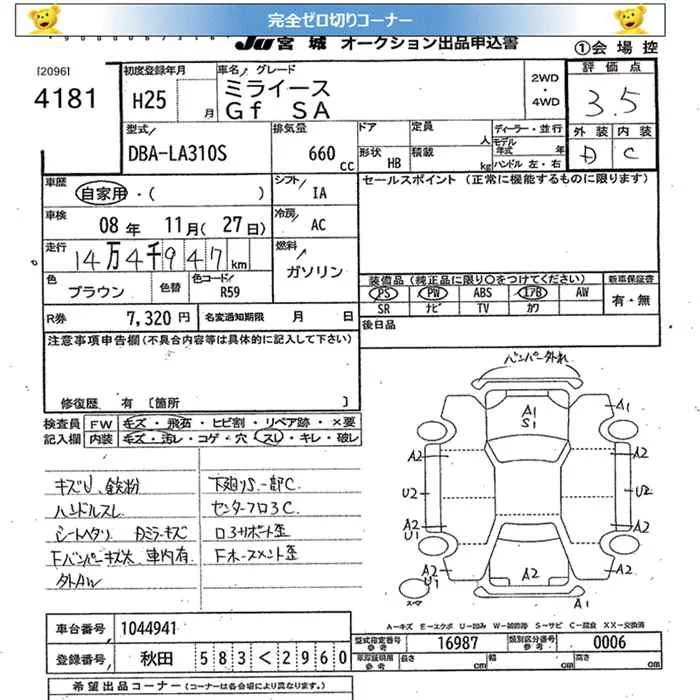 完全ゼロ切りコーナー
JU 宮城 オークション出品申込書
①会場控
[2096]
4181
初度登録年月
H25 月
車名/グレード
ミライース
Gf SA
2WD
・
4WD
評価点
3.5
外装 内装
D C
型式/
DBA-LA310S
排気量
660 cc
ドア
定員 人
形状 HB
積載 kg
ディーラー・並行
モデル年式 年
ハンドル 左・右
車歴
自家用・( )
シフト/ IA
車検
08年 11月(27日)
冷房/ AC
走行
14万4千947km
燃料/
ガソリン
色
ブラウン
色替
色コード/
R59
R券 7,320円
名変通知期限 月 日
セールスポイント (正常に機能するものに限ります)
装備品 (純正品に限り○をつけてください)
新車保証書
PS PW ABS エアB AW
SR ナビ TV カワ
有・無
後日品
注意事項申告欄(不具合内容等は具体的に記入して下さい)
修復歴 有 〔箇所 〕
検査員記入欄
FW キズ・飛石・ヒビ割・リペア跡・×要
内装 キズ・汚レ・コゲ・穴・スレ・キレ・破レ
キズU、鉄粉
ハンドルスレ
シートヘタリ Dミラーキズ
Fバンパーキズ大 車内有
外AW
下廻りS、一部C
センターフロ3C
ロ3サポート歪
Fホースメント歪
バンパー外れ
A1
S1
A1
A2
A2
U2
U2
A2
U1
A2
A2
A2
U1
A1
A-キズ E-エクボ U-凹み W-補修跡 S-サビ C-腐食 XX-交換済
車台番号 1044941
登録番号 秋田 583 く 2960
型式指定番号
参考
16987
類別区分番号
参考
0006
車庫証明用
参考
長さ cm
幅 cm
高さ cm
希望出品コーナー (コーナーは各会場により異なります。)